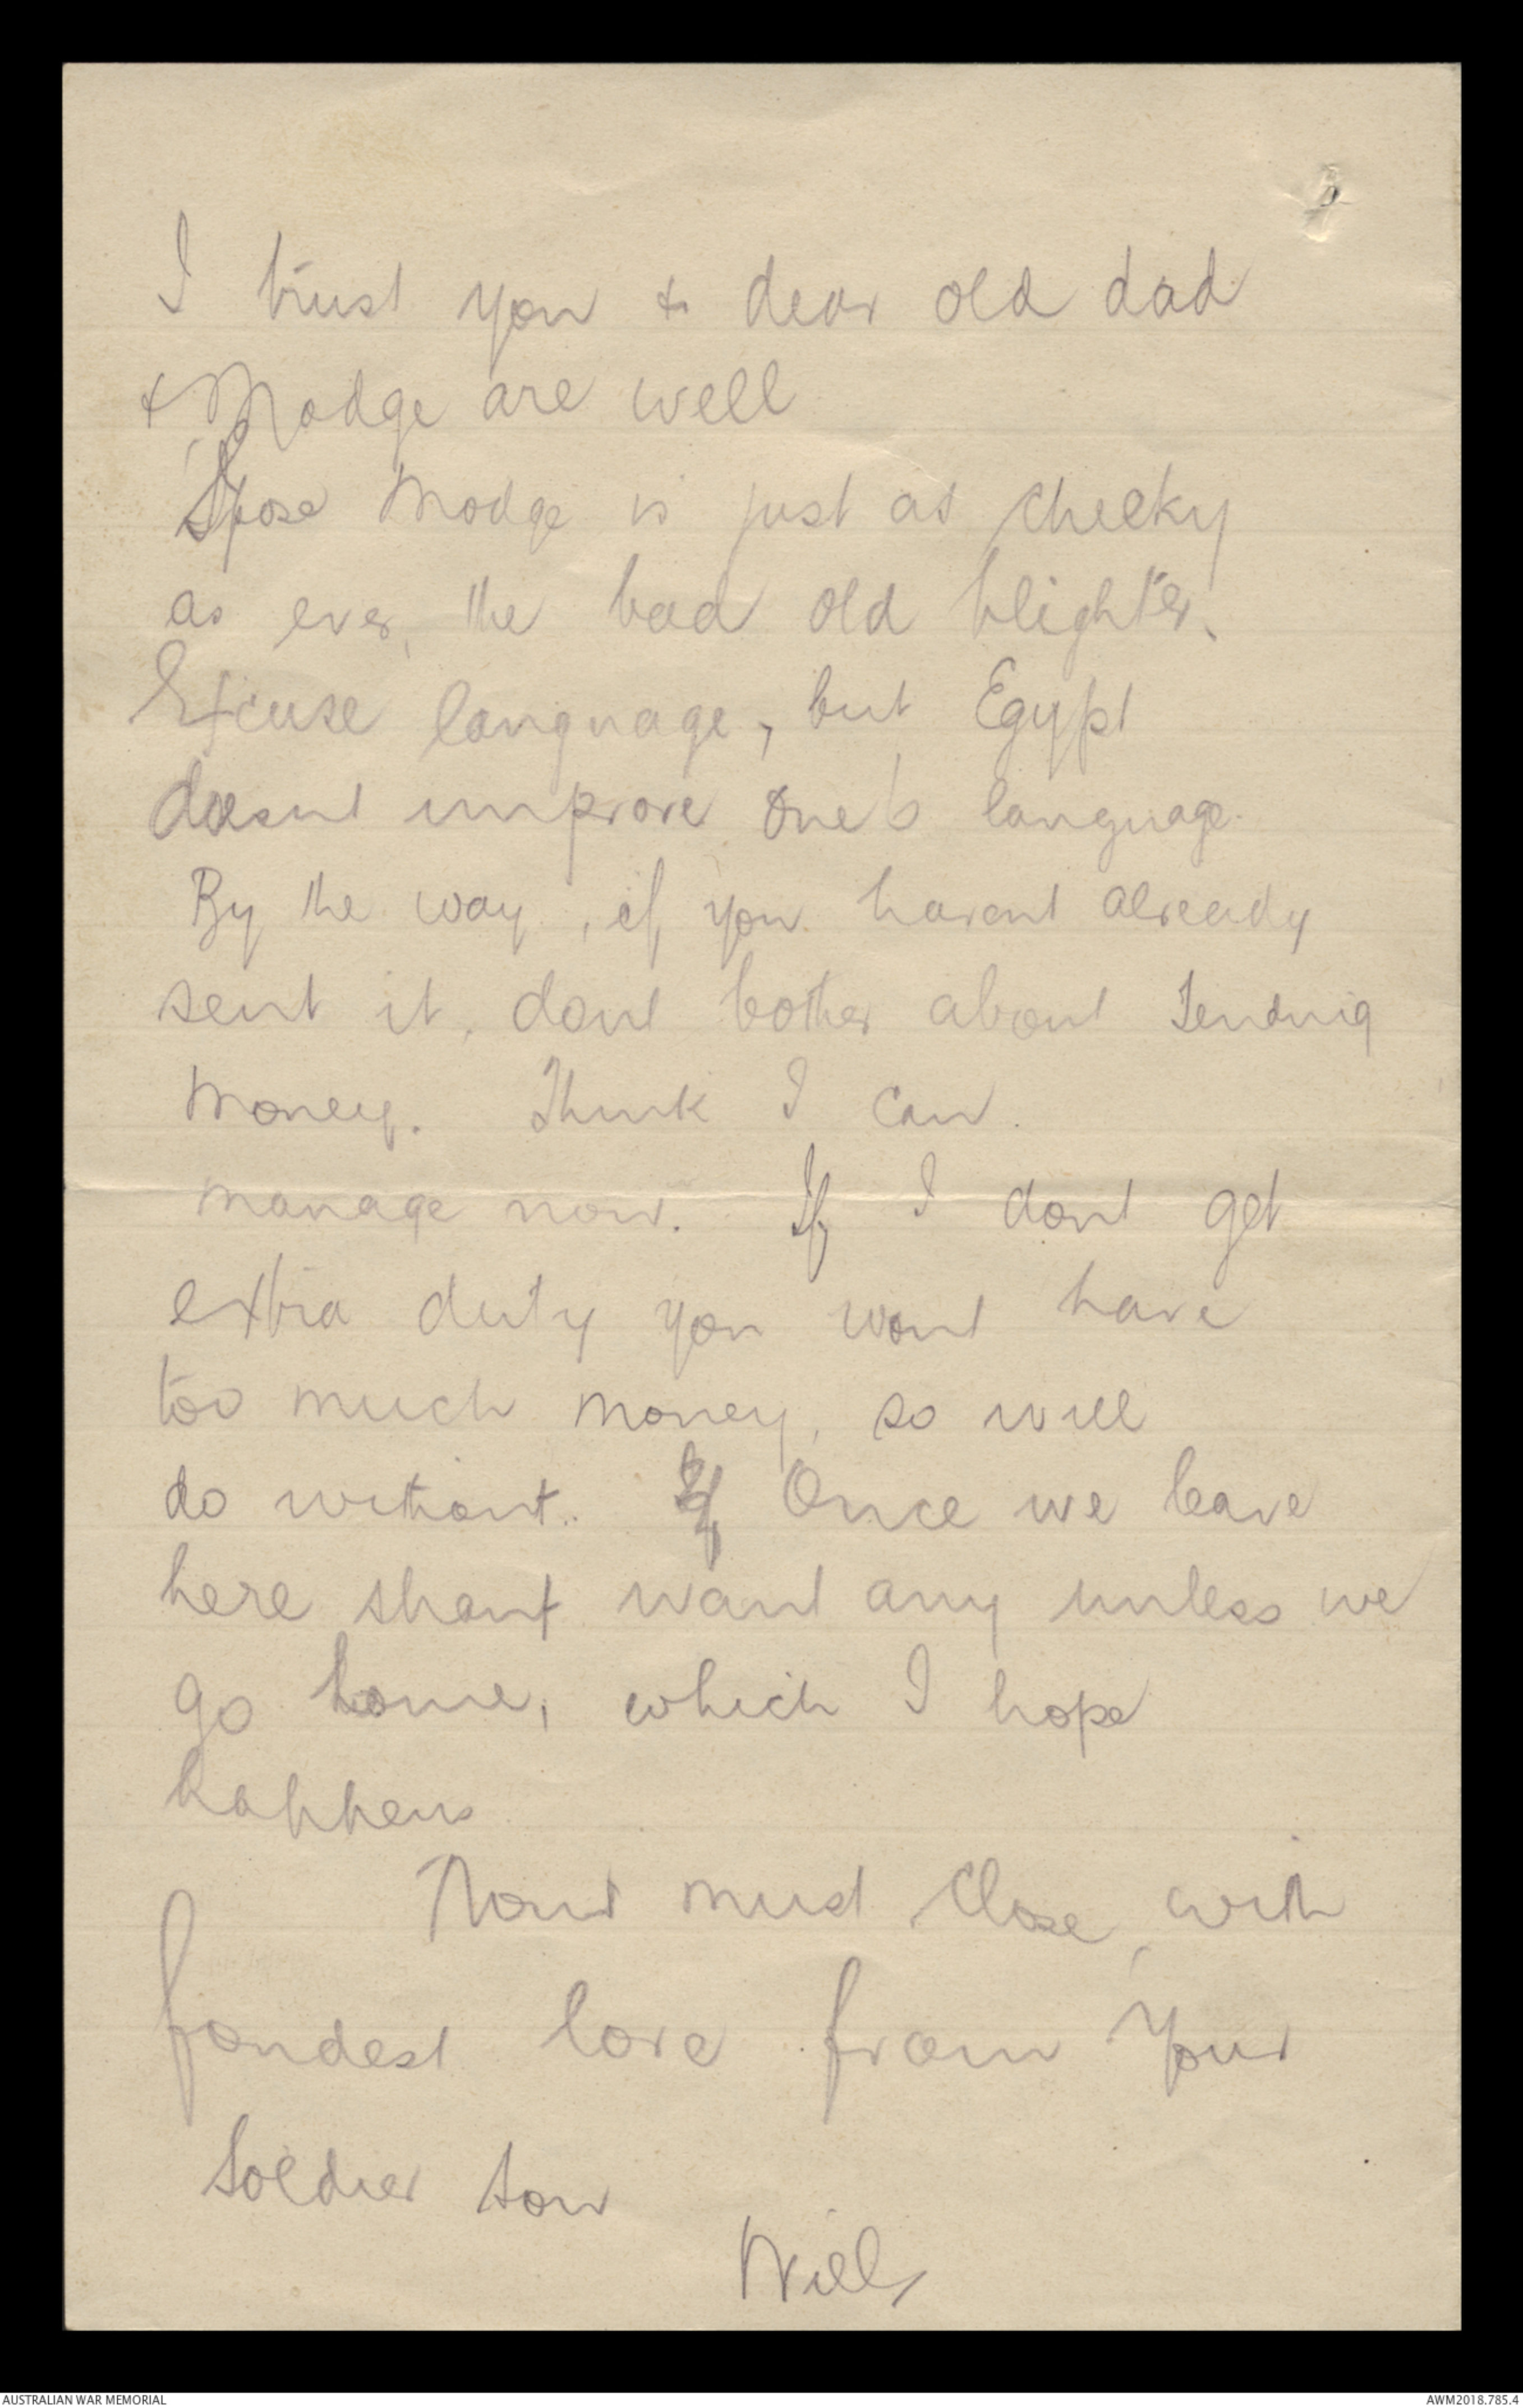 I trust you & dear old dad
& Madge are well
Spose Madge is just as cheeky
as ever, the bad old blighter.
Excuse language, but Egypt
doesnt improve one's language.
By the way, if you havent already
sent it, dont bother about sending
money. Think I can
manage now. If I dont get
extra duty you wont have
too much money, so will
do without. If Once we leave
here shant want any unless we
go home, which I hope
happens
Now must close, with
fondest love from Your
Soldier Son
Will
AUSTRALIAN WAR MEMORIAL
AWM2018.785.4